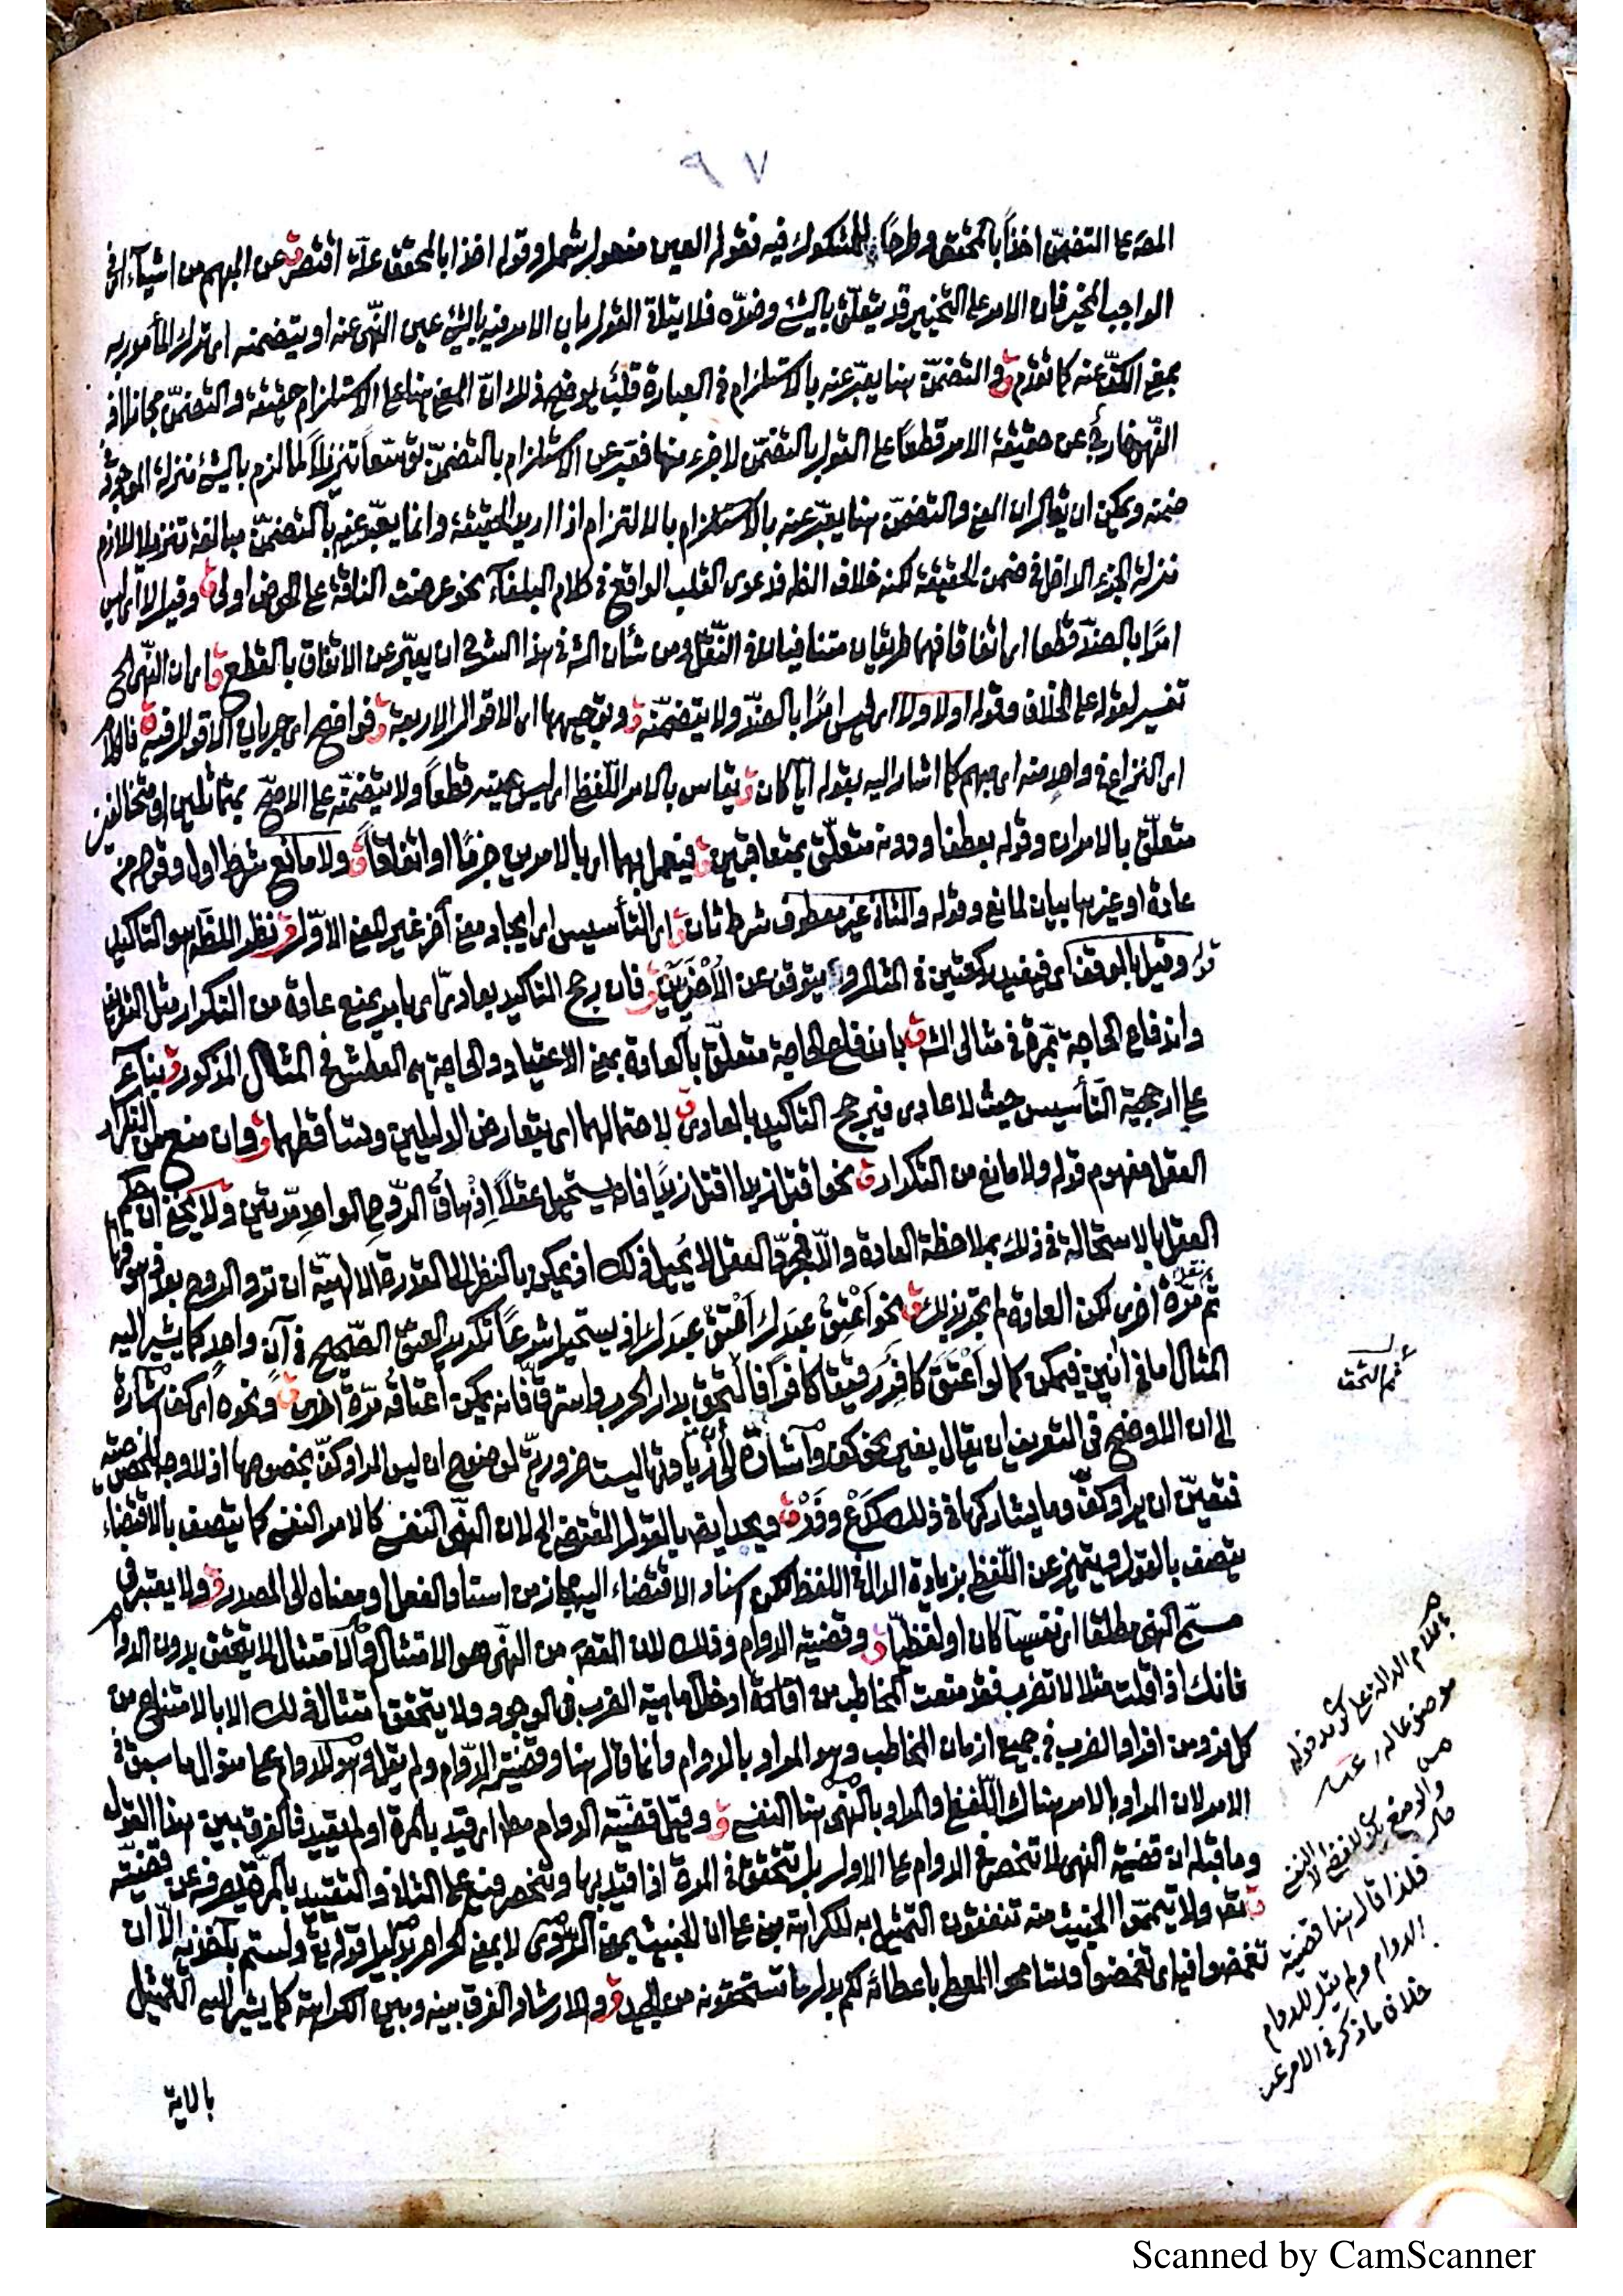 ٧٩
المصـ على التضمن اخذا بالمحقق وطرحا للمشكوك فيه فقوله العين مفعول يشمل وقوله اخذا بالمحقق علة اقتصر ق عن المبهم من اشياء اى فى
الواجب المخير فان الامر على التخيير قد يتعلق بالشئ وضده فلا يتأتى القول بان الامر فيه بالشئ عين النهى عنه او يتضمنه اى ترك المأمور به
بمعنى الكف عنه كما تقدم ق والتضمن هنا يعبر عنه بالاستلزام فى العبارة قلب يوضح ذلك ان المعنى هنا على الاستلزام حقيقة والتضمن مجازا اذ
النهى خارج عن حقيقة الامر قطعا على القول بالتضمن لا جزء منها فعبر عن الاستلزام بالتضمن توسعا تنزيلا لما لزم بالشئ منزلة الموجود فى
ضمنه ويمكن ان يقال ان المعنى والتضمن هنا يعبر عنه بالاستلزام بالالتزام اذا اريد الحقيقة وانما يعبر عنه بالتضمن مبالغة تنزيلا للازم
منزلة الجزء الداخل فى ضمن الحقيقة لكنه خلاف الظـ فدعوى القلب الواقع فى كلام البلغاء نحو عرضت الناقة على الحوض اولى ق وقيل لا اى ليس
امرا بالضد قطعا اى اتفاقا فهما طريقان متنافيان فى النقل ومن شأن الشـ فى هذا الشرح ان يعبر عن الاتفاق بالقطع ق اى ان النهى الخ
تفسير لقوله على الخلاف وقوله اولا ولا اى ليس امرا بالضد ولا يتضمنه ق وتوجيهها اى الاقوال الاربعة ق فواضح اى جريان الاقوال فيه ق فالكلام
اى النزاع فى واحد منه اى مبهم كما اشار اليه بقوله ايا كان ق يقاس بالامر اللفظى اى ليس عينه قطعا ولا يتضمنه على الاصح بمتماثلين او متخالفين
متعلق بالامران وقوله بعطف او دونه متعلق بمتعاقبين ق فيعمل بهما اى بالامرين جزما او اتفاقا ق ولا مانع شرط اول وقوله من
عادة او غيرها بيان لمانع وقوله والثانى غير معطوف شرط ثان ق اى التأسيس اى ايجاد معنى آخر غير المعنى الاول ق نظرا للظـ هو التأكيد
قوله وقيل بالوقف اى فيفيد ركعتين فى المثال ويتوقف عن الاخريين ق فان رجح التأكيد بعادى اى بامر يمنع عادة من التكرار مثل التعريف
واندفاع الحاجة بمرة فى مثالى الشـ ق باندفاع الحاجة متعلق بالعادة بمعنى الاعتياد والحاجة هى العطش فى المثال المذكور ق بناء
على ارجحية التأسيس حيث لا عادى فيرجح التأكيد بالعادى ق لاحتمالهما اى بتعارض الدليلين وتساقطهما ق وان منع من التكرار
العقل مفهوم قوله ولا مانع من التكرار ق نحو اقتل زيدا اقتل زيدا فانه يستحيل عقلا ازهاق الروح الواحد مرتين ولا يخفى ان حكم
العقل بالاستحالة فى ذلك بملاحظة العادة والا فمجرد العقل لا يحيل ذلك اذ يمكن بالنظر الى القدرة الالهية ان ترد الروح بعد زهوقها
ثم تزهق مرة اخرى لكن العادة لم تجر بذلك ق نحو اعتق عبدك اعتق عبدك اذ يستحيل شرعا تكرير العتق الصحيح فى آن واحد كما يشير اليه
المثال اما فى آنين فيمكن كما لو اعتق كافر رقيقا كافرا فالتحق بدار الحرب واسترق فانه يمكن اعتاقه مرة اخرى ق ونحوه اى كف اشارة
الى ان الاوضح فى التعريف ان يقال بغير نحو كف واشارة الى زيادتها ليست ضرورية لوضوح ان ليس المراد كف بخصوصها اذ لا وجه لتخصيصه
فتعين ان يراد كف وما يشاركها فى ذلك كدع وذر ق ويحد ايضا بالقول المقتضى الخ لان النهى النفسى كالامر النفسى كما يتصف بالاقتضاء
يتصف بالقول ويتميز عن اللفظ بزيادة الدال فى اللفظ لكن اسناد الاقتضاء اليه مجاز من اسناد الفعل او معناه الى المصدر ق ولا يعتبر فى
مسمى النهى مطلقا اى نفسيا كان او لفظيا ق وقضيته الدوام وذلك لان القصد من النهى هو الامتثال والامتثال لا يتحقق بدون الدوام
فانك اذا قلت مثلا لا تضرب فقد منعت المخاطب من افادة ادخال ماهية الضرب فى الوجود ولا يتحقق امتثاله فى ذلك الا بالامتناع من
كل فرد من افراد الضرب فى جميع ازمان المخاطب وهو المراد بالدوام وانما قال هنا وقضيته الدوام ولم يقل وهو للدوام على منوال ما سبق فى
الامر لان المراد بالامر هناك اللفظى والمراد بالنهى هنا النفسى ق وقيل قضيته الدوام مطـ اى قيد بالمرة او لم يقيد فالفرق بين هذا القول
وما قبله ان قضية النهى لا تنحصر فى الدوام على الاول بل تتحقق فى المرة اذا قيد بها وتنحصر فيه على الثانى والتقييد بالمرة يصرفه عن قضيته
ق تقـ ولا تيمموا الخبيث منه تنفقون التمثيل به للكراهة مبنى على ان الخبيث بمعنى الردى لا بمعنى الحرام بدليل قوله تع ولستم بآخذيه الا ان
تغمضوا فيه اى تغمضوا وتتسامحوا المعطى باعطائه لكم بدل ما تستحقونه من الجيد ق والارشاد الفرق بينه وبين الكراهة كما يشير اليه التمثيل
بالاية
فلذا قال هنا قضيته
الدوام ولم يقل للدوام
خلاف ما ذكر فى الامر